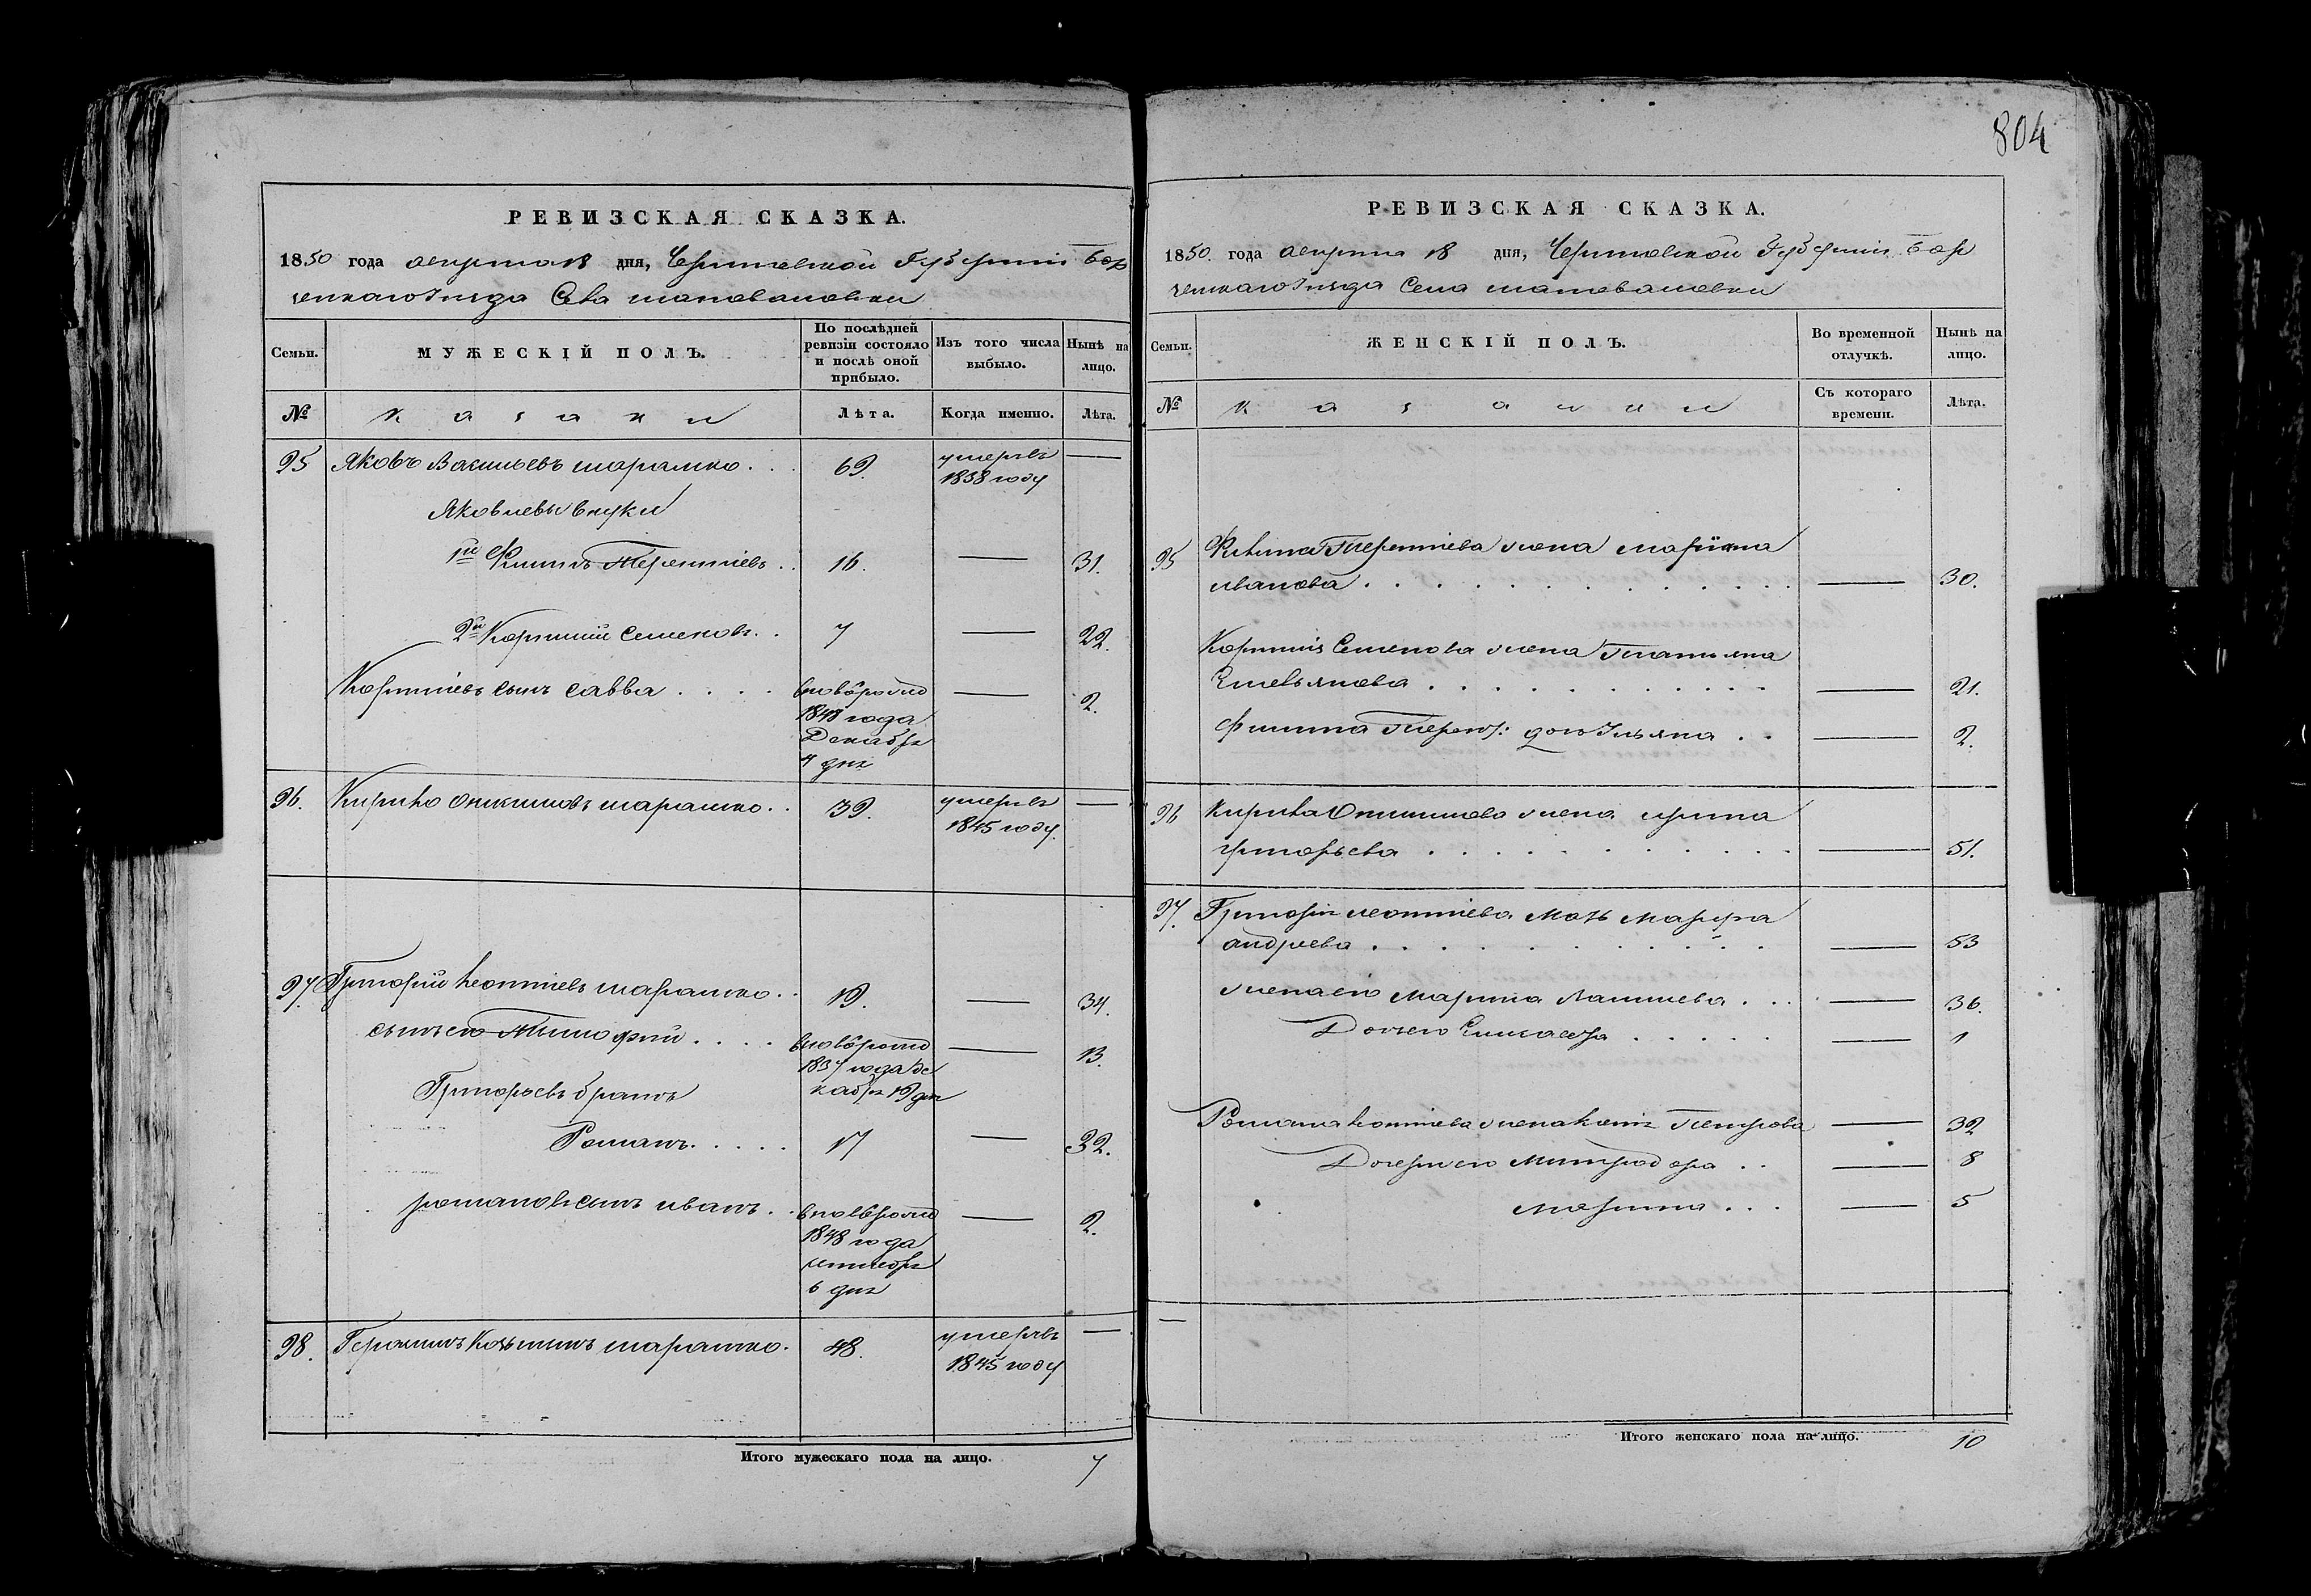 804
РЕВИЗСКАЯ СКАЗКА.
1850 года августа 18 дня, Черниговской Губернии Бор
зенскаго Уезда Села шаповаловки
Семьи.
МУЖЕСКІЙ ПОЛЪ.
По послѣдней ревизіи состояло и послѣ оной прибыло.
Изъ того числа выбыло.
Нынѣ на лицо.
№
казаки
Лѣта.
Когда именно.
Лѣта.
95 Яковъ Васильевъ шарамко . . 69. умерлъ 1838 году —
Яковлевы внуки
1й Филипъ Терентіевъ . . 16. — 31.
2й Корнилій Семеновъ . . 7 — 22.
Корниліевъ сынъ савва . . . . вновьрожд 1848 года Декабря 4 дня — 2.
96. Кирило Онисимовъ шарамко . . 39. умерлъ 1845 году. —
97. Григорій Леонтіевъ шарамко . . 19. — 34.
сынъ его Тимофій . . . . вновьрожд 1837 года де кабря 19 дня — 13.
Григорьевъ братъ
Романъ . . . . . 17 — 32.
романовъ сынъ иванъ . . вновьрожд 1848 года сентября 6 дня — 2.
98. Герасимъ Козьминъ шарамко . 48. умерлъ 1845 году —
Итого мужескаго пола на лицо. 7
РЕВИЗСКАЯ СКАЗКА.
1850 года августа 18 дня, Черниговской Губернии Бор
зенскаго Уезда Села шаповаловки
Семьи.
ЖЕНСКІЙ ПОЛЪ.
Во временной отлучкѣ.
Нынѣ на лицо.
№
Съ котораго времени.
Лѣта.
95 Филипа Терентіева жена маріяна
иванова . . . . . . . . . . . — 30.
Корнилія Семенова жена Татьяна
Емельянова . . . . . . . . . — 21.
Филипа Терент: дочь Ульяна . . — 2.
96 Кирила Онисимова жена ирина
григорьева . . . . . . . . . . — 51.
97. Григорія леонтіева мать марфа
андреева . . . . . . . . . . — 53
жена его марина — 36.
Дочь его . . . . . — 1
Романа Леонтіева жена Петрова — 32
Дочери его митродора . . — 8
марина . . . — 5
Итого женскаго пола на лицо. 10